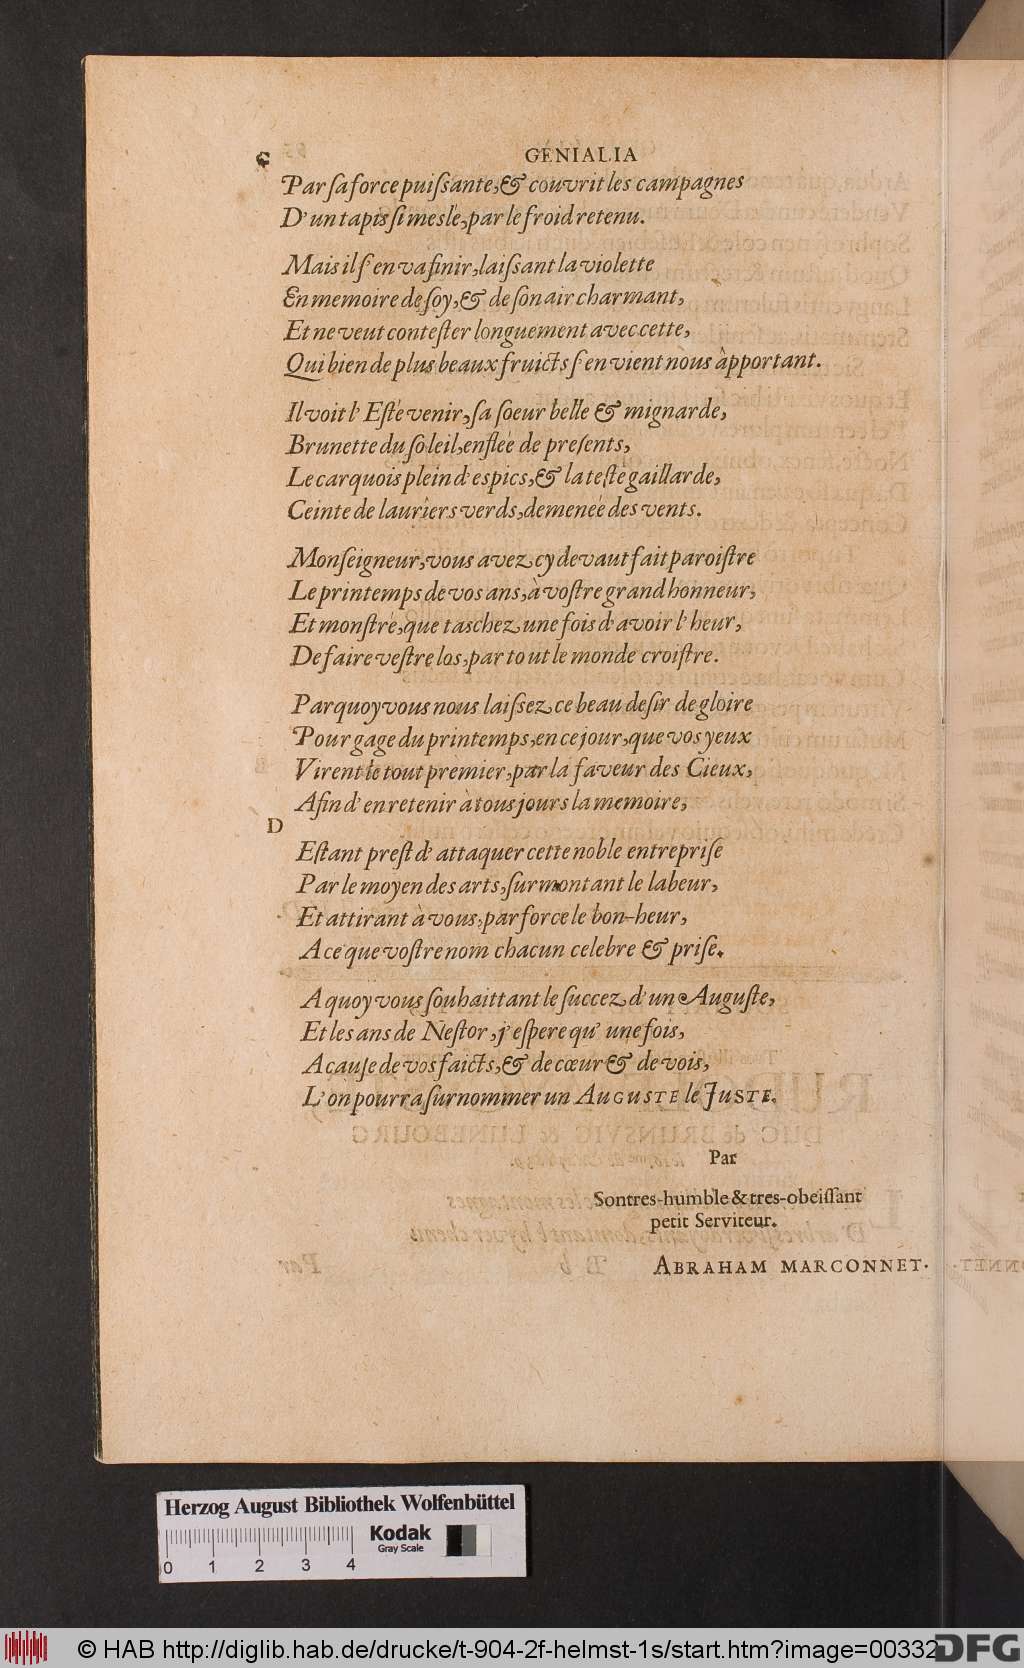 GENIALIA
C
Par ſa force puiſsante, & couvrit les campagnes
D'un tapis ſi meslé, par le froid retenu.
Mais il ſ'en va finir, laiſsant la violette
En memoire de ſoy, & de ſon air charmant,
Et ne veut conteſter longuement avec cette,
Qui bien de plus beaux fruicts ſ'en vient nous àpportant.
Il voit l'Eſté venir, ſa ſoeur belle & mignarde,
Brunette du ſoleil, enflée de preſents,
Le carquois plein d'espics, & la teſte gaillarde,
Ceinte de lauriers verds, demenée des vents.
Monſeigneur, vous avez cy devaut fait paroiſtre
Le printemps de vos ans, à voſtre grand honneur,
Et monſtré, que taschez une fois d'avoir l'heur,
De faire veſtre los, par tout le monde croiſtre.
Parquoy vous nous laiſsez ce beau deſir de gloire
Pour gage du printemps, en ce jour, que vos yeux
Virent le tout premier, par la faveur des Cieux,
Afin d'en retenir à tousjours la memoire,
D
Eſtant preſt d'attaquer cette noble entrepriſe
Par le moyen des arts, ſurmontant le labeur,
Et attirant à vous, par force le bon-heur,
A ce que voſtre nom chacun celebre & priſe.
A quoy vous ſouhaittant le ſuccez d'un Auguſte,
Et les ans de Neſtor, j'eſpere qu'une fois,
A cauſe de vos faicts, & de cœur & de vois,
L'on pourra ſurnommer un AUGUSTE le JUSTE.
Par
Son tres-humble & tres-obeiſſant
petit Serviteur.
ABRAHAM MARCONNET.
Herzog August Bibliothek Wolfenbüttel
Kodak
Gray Scale
0 1 2 3 4
© HAB http://diglib.hab.de/drucke/t-904-2f-helmst-1s/start.htm?image=00332
DFG